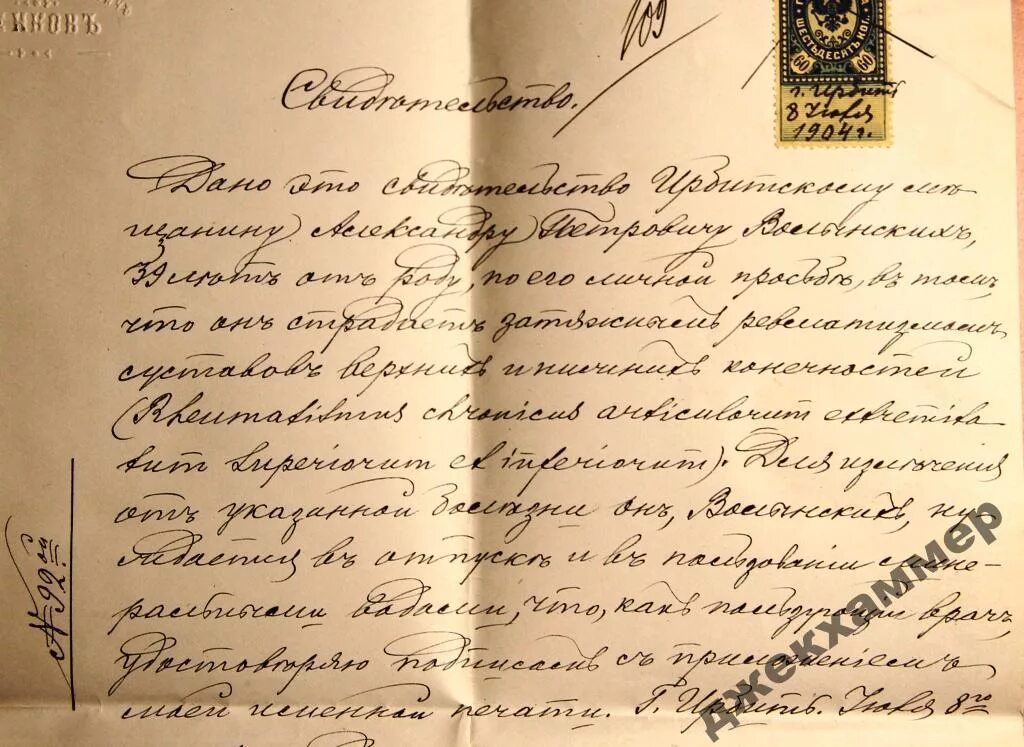 нковъ
109
ШЕСТЬДЕСЯТЬ КОП.
60 60
г. Ирбитъ
8 Июля
1904 г.
Свидѣтельство.
Дано это свидѣтельство Ирбитскому мѣ
щанину Александру Петровичу Волынскихъ,
39 лѣтъ отъ роду, по его личной просьбѣ, въ томъ,
что онъ страдаетъ затяжнымъ ревматизмомъ
суставовъ верхнихъ и нижнихъ конечностей
(Rheumatismus chronicus articulorum extremita
tum superiorum et inferiorum). Для излѣченія
отъ указанной болѣзни онъ, Волынскихъ, ну
ждается въ отпускѣ и въ пользованіи мине-
ральными водами, что, какъ пользующій врачъ,
удостовѣряю подписомъ съ приложеніемъ
моей именной печати. Г. Ирбитъ. Июля 8го
№ 92ой
джекхаммер